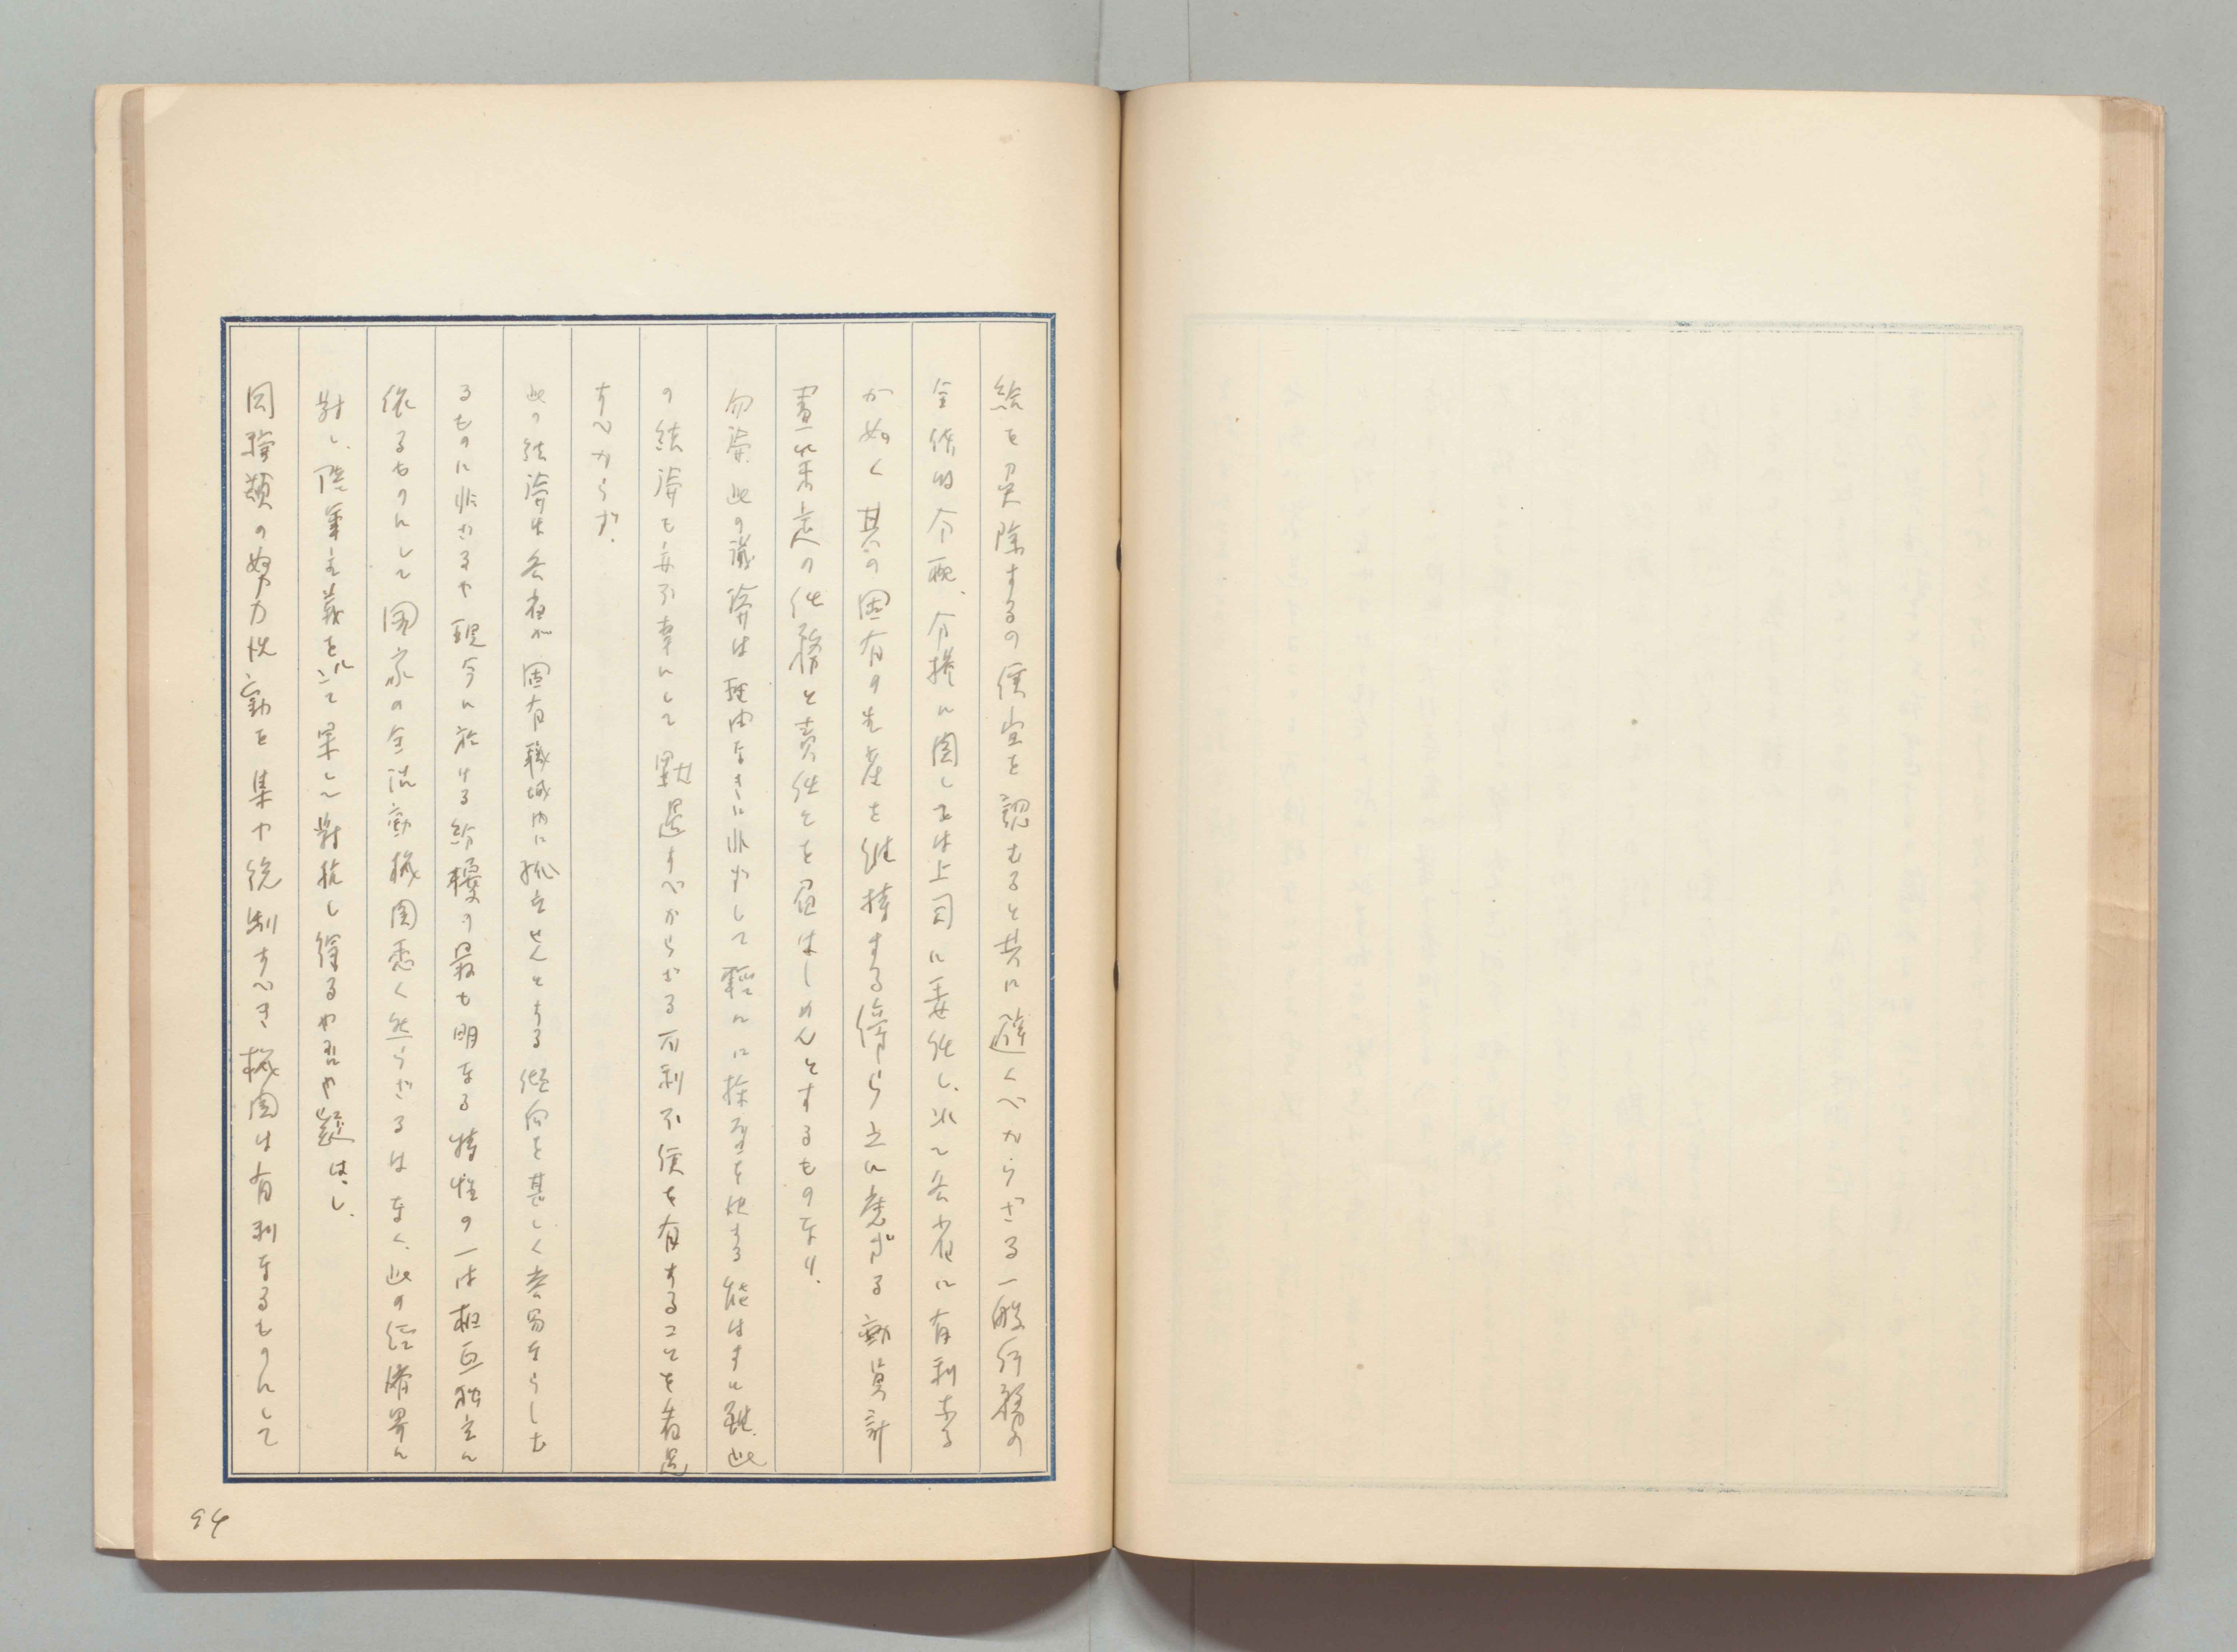 給を免除するの便宜を認むると共に避くべからざる一般行務の
全体的分配、分擔に関しては上司に委任し、以て各省に有利なる
が如く其の固有の生産を維持する傍ら之に應ずる動員計
畫以来之の任務と責任とを負はしめんとするものなり、
勿論、此の議論は理由なきに非ずして輕々に採否を決する能はずと雖、此
の結論も亦不幸にして默過すべからざる不利不便を有することを看過
すべからず、
此の結論は各省が固有職域内に孤立せんとする傾向を甚しく容易ならしむ
るものに非ざるや現今に於ける紛擾の最も明なる特性の一は相互独立に
依るものにして国家の全活動機関悉く然らざるはなく、此の経済界に
対し、陸軍主義を以て果して対抗し得るや否や疑はし、
同種類の努力活動を集中統制すべき機関は有利なるものにして
94